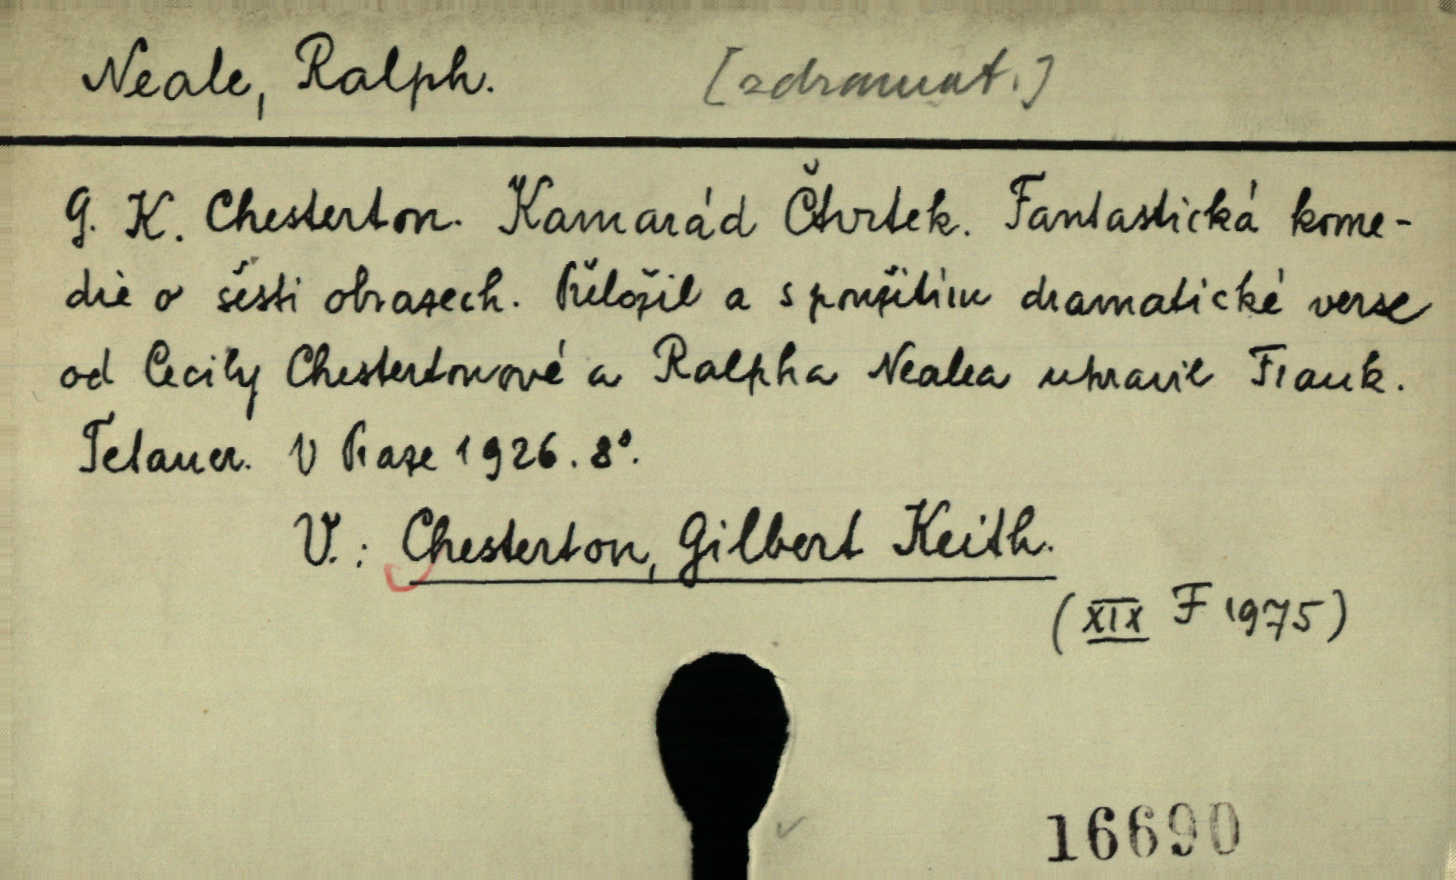 Neale, Ralph. [zdramat.]
G. K. Chesterton. Kamarád Čtvrtek. Fantastická kome-
die o šesti obrazech. Přeložil a s použitím dramatické verse
od Cecily Chestertonové a Ralpha Nealea upravil Frank.
Tetauer. V Praze 1926. 8°.
V.: Chesterton, Gilbert Keith.
(XIX F 1975)
16690